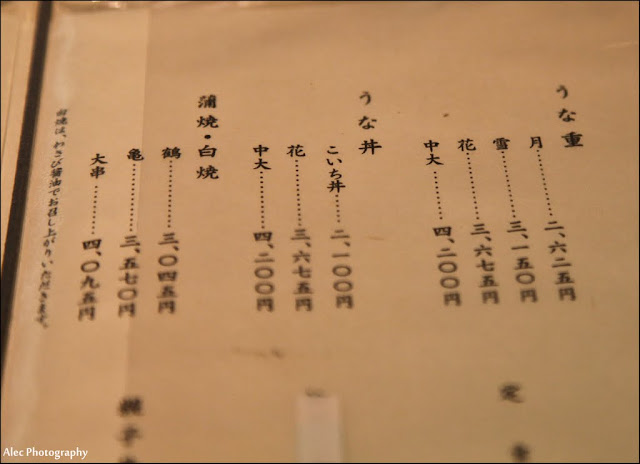 うな重
月………二、六二五円
雪………三、一五〇円
花………三、六七五円
中大………四、二〇〇円
うな丼
こいち丼………二、一〇〇円
花………三、六七五円
中大………四、二〇〇円
蒲焼・白焼
鶴………三、〇四五円
亀………三、五七〇円
大串………四、〇九五円
白焼は、わさび醤油でお召し上がりいただきます。
定
Alec Photography